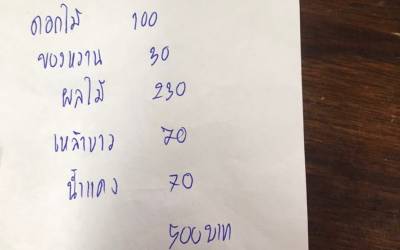 ดอกไม้ 100
ของหวาน 30
ผลไม้ 230
เหล้าขาว 70
น้ำแดง 70
500 บาท